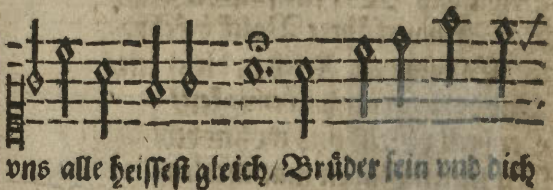 vns alle heissest gleich/ Brüder sein vnd dich